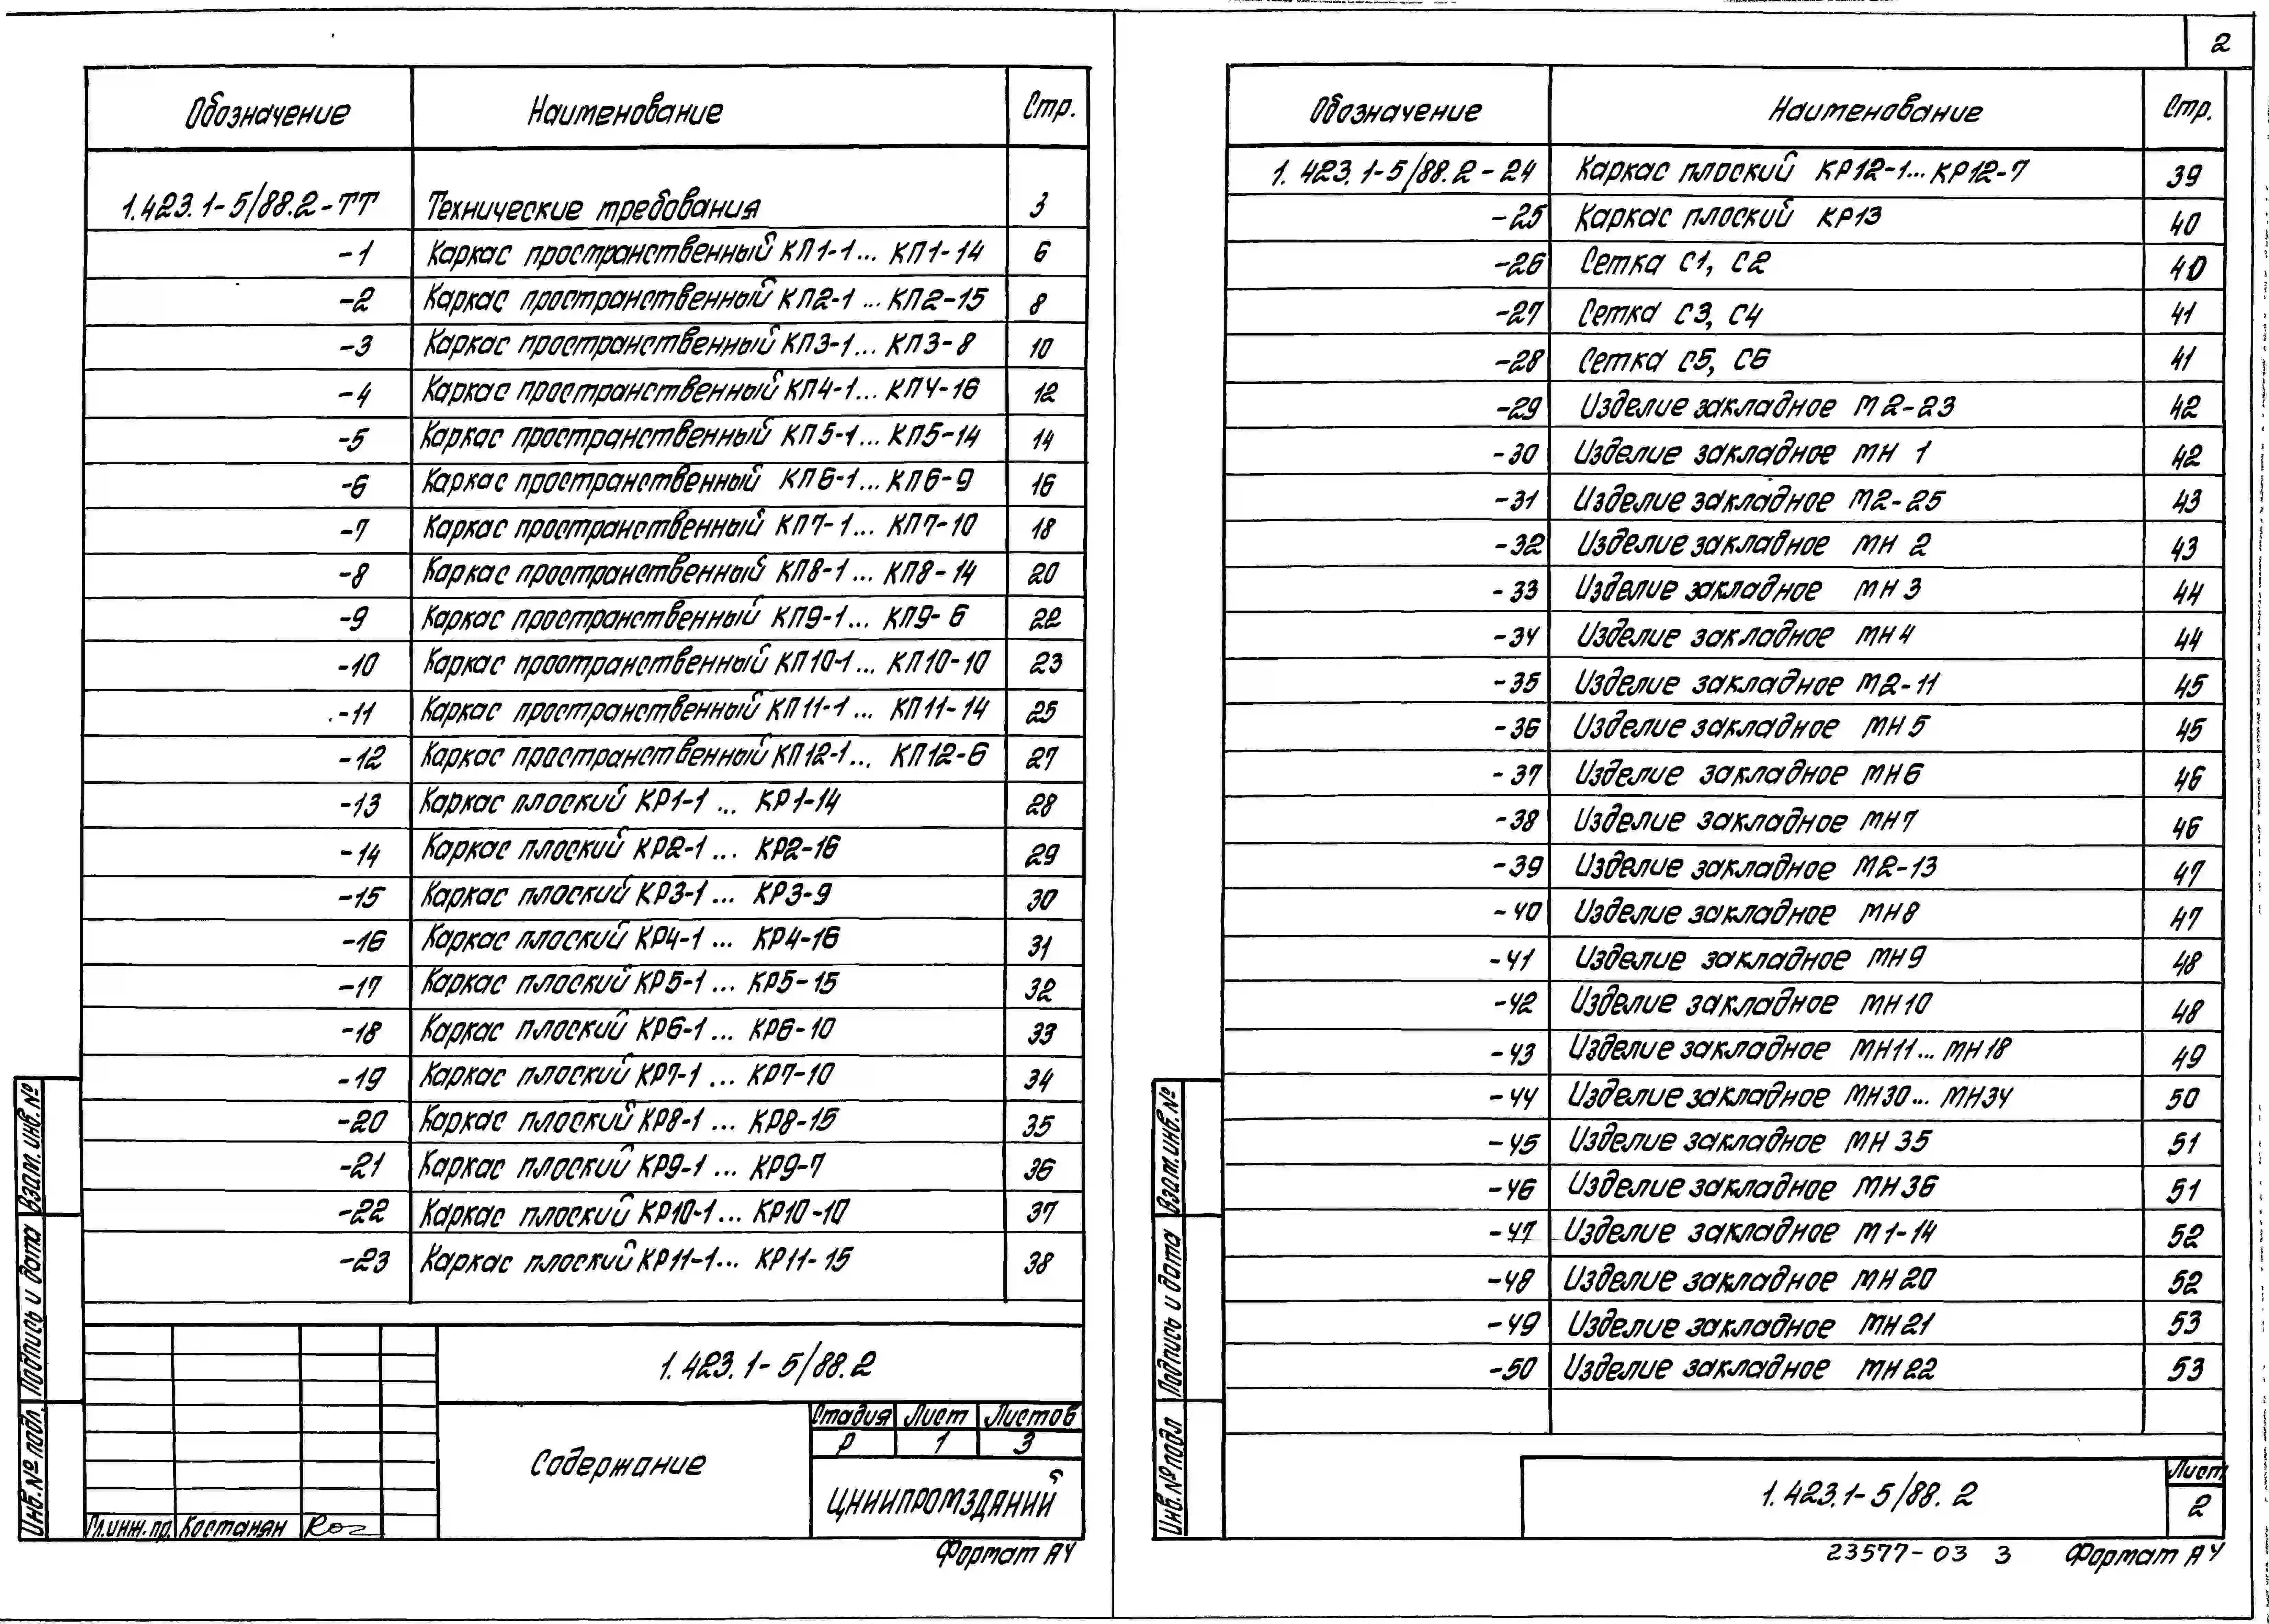 Обозначение Наименование Стр.
1.423.1-5/88.2-ТТ Технические требования 3
-1 Каркас пространственный КП1-1... КП1-14 6
-2 Каркас пространственный КП2-1 ... КП2-15 8
-3 Каркас пространственный КП3-1... КП3-8 10
-4 Каркас пространственный КП4-1... КП4-16 12
-5 Каркас пространственный КП5-1... КП5-14 14
-6 Каркас пространственный КП6-1... КП6-9 16
-7 Каркас пространственный КП7-1... КП7-10 18
-8 Каркас пространственный КП8-1... КП8-14 20
-9 Каркас пространственный КП9-1... КП9-6 22
-10 Каркас пространственный КП10-1... КП10-10 23
-11 Каркас пространственный КП11-1... КП11-14 25
-12 Каркас пространственный КП12-1... КП12-6 27
-13 Каркас плоский КР1-1 ... КР1-14 28
-14 Каркас плоский КР2-1 ... КР2-16 29
-15 Каркас плоский КР3-1 ... КР3-9 30
-16 Каркас плоский КР4-1 ... КР4-16 31
-17 Каркас плоский КР5-1 ... КР5-15 32
-18 Каркас плоский КР6-1 ... КР6-10 33
-19 Каркас плоский КР7-1 ... КР7-10 34
-20 Каркас плоский КР8-1 ... КР8-15 35
-21 Каркас плоский КР9-1 ... КР9-7 36
-22 Каркас плоский КР10-1... КР10-10 37
-23 Каркас плоский КР11-1... КР11-15 38
1.423.1-5/88.2
Содержание
Стадия Лист Листов
Р 1 3
ЦНИИПРОМЗДАНИЙ
Гл.инж.пр. Костанян
Формат А4
Взам.инв.№
Подпись и дата
Инв.№ подл.
2
Обозначение Наименование Стр.
1.423.1-5/88.2-24 Каркас плоский КР12-1... КР12-7 39
-25 Каркас плоский КР13 40
-26 Сетка С1, С2 40
-27 Сетка С3, С4 41
-28 Сетка С5, С6 41
-29 Изделие закладное М2-23 42
-30 Изделие закладное МН 1 42
-31 Изделие закладное М2-25 43
-32 Изделие закладное МН 2 43
-33 Изделие закладное МН 3 44
-34 Изделие закладное МН4 44
-35 Изделие закладное М2-11 45
-36 Изделие закладное МН5 45
-37 Изделие закладное МН6 46
-38 Изделие закладное МН7 46
-39 Изделие закладное М2-13 47
-40 Изделие закладное МН8 47
-41 Изделие закладное МН9 48
-42 Изделие закладное МН10 48
-43 Изделие закладное МН11... МН18 49
-44 Изделие закладное МН30... МН34 50
-45 Изделие закладное МН 35 51
-46 Изделие закладное МН36 51
-47 Изделие закладное М1-14 52
-48 Изделие закладное МН20 52
-49 Изделие закладное МН21 53
-50 Изделие закладное МН22 53
1.423.1-5/88.2
Лист
2
23577-03 3 Формат А4
Взам.инв.№
Подпись и дата
Инв.№ подл